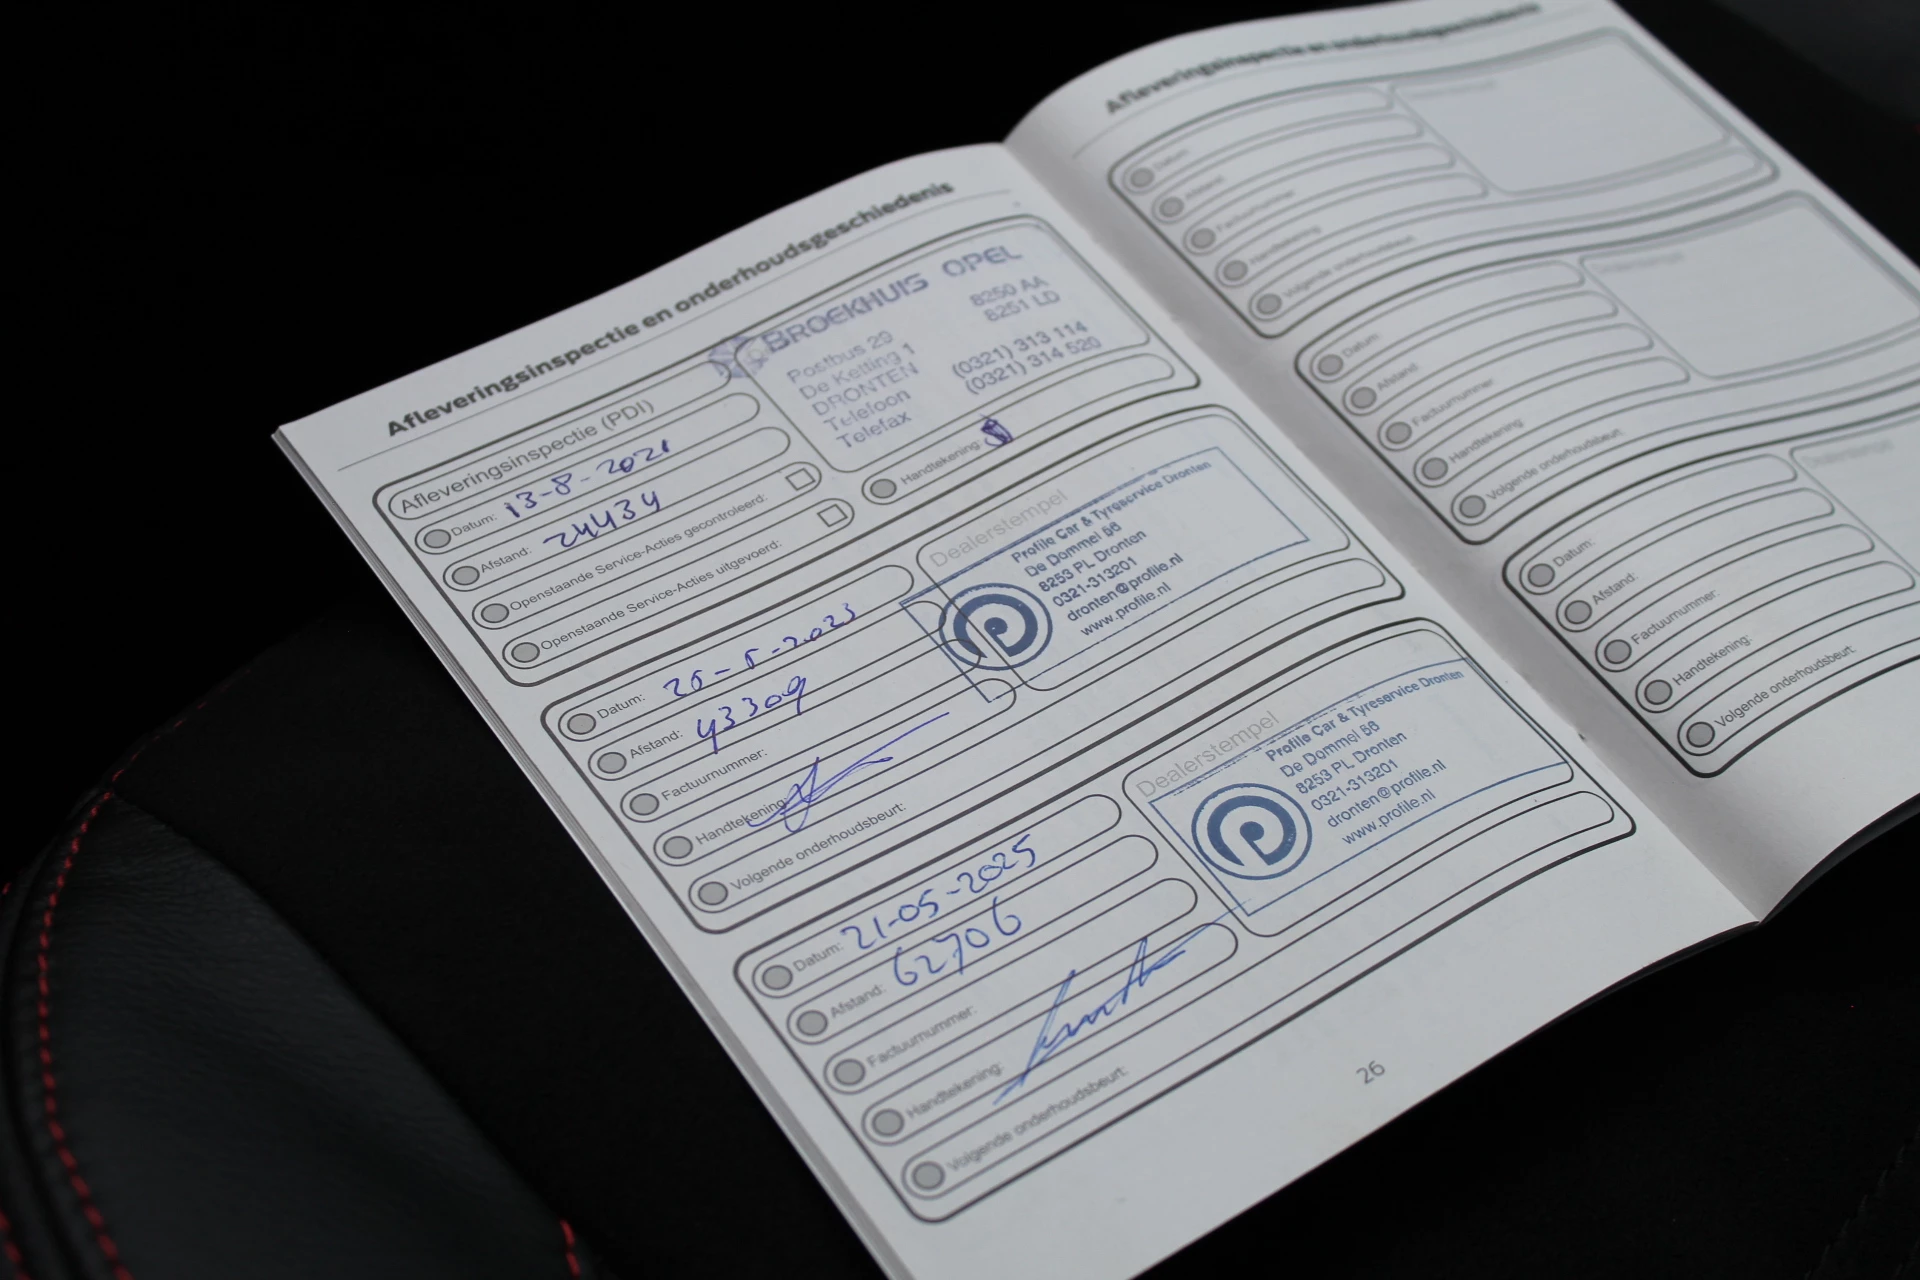 Afleveringsinspectie en onderhoudsgeschiedenis
Afleveringsinspectie (PDI)
Datum: 13-8-2021
Afstand: 24434
Openstaande Service-Acties gecontroleerd:
Openstaande Service-Acties uitgevoerd:
BROEKHUIS OPEL
Postbus 29 8250 AA
De Ketting 1 8251 LD
DRONTEN
Telefoon (0321) 313 114
Telefax (0321) 314 520
Handtekening:
Datum: 25-5-2023
Afstand: 43309
Factuurnummer:
Handtekening:
Volgende onderhoudsbeurt:
Dealerstempel
Profile Car & Tyreservice Dronten
De Dommel 56
8253 PL Dronten
0321-313201
dronten@profile.nl
www.profile.nl
Datum: 21-05-2025
Afstand: 62706
Factuurnummer:
Handtekening:
Volgende onderhoudsbeurt:
Dealerstempel
Profile Car & Tyreservice Dronten
De Dommel 56
8253 PL Dronten
0321-313201
dronten@profile.nl
www.profile.nl
26
Afleveringsinspectie en onderhoudsgeschiedenis
Datum:
Afstand:
Factuurnummer:
Handtekening:
Volgende onderhoudsbeurt:
Datum:
Afstand:
Factuurnummer:
Handtekening:
Volgende onderhoudsbeurt:
Datum:
Afstand:
Factuurnummer:
Handtekening:
Volgende onderhoudsbeurt: